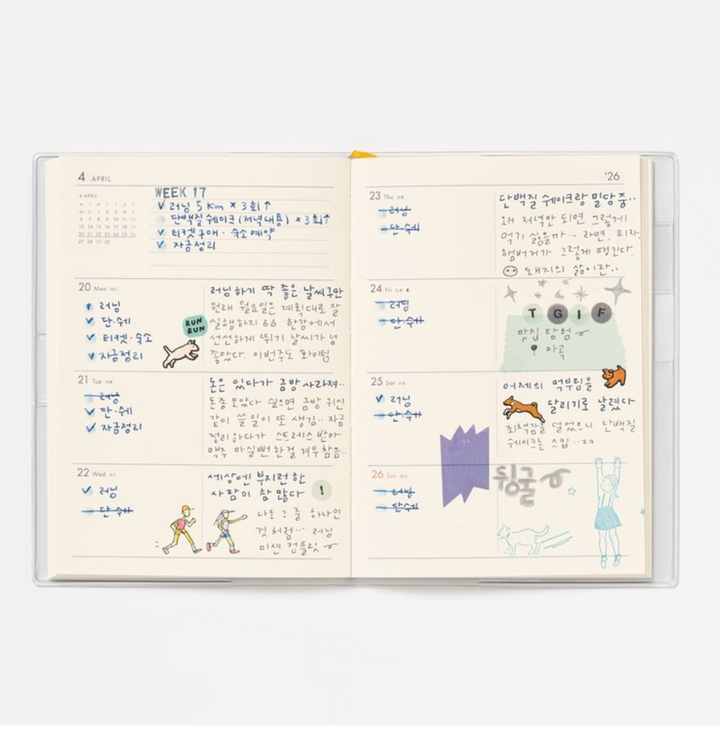 4 APRIL
WEEK 17
✓ 러닝 5 Km × 3회↑
단백질 쉐이크 (저녁대용) × 3회↑
✓ 티켓구매 · 숙소예약
✓ 자금정리
20 Mon
러닝
✓ 단·쉐
✓ 티켓·숙소
✓ 자금정리
RUN
RUN
러닝하기 딱 좋은 날씨구만
원래 월요일은 계획대로 잘
실행하지 66 한강에서
선선하게 뛰기 날씨가 넘
좋았다. 이번주도 화이팅
21 Tue
러닝
✓ 단·쉐
✓ 자금정리
돈은 있다가 금방 사라져..
돈좀 모았다 싶으면 금방 귀신
같이 쓸 일이 또 생김.. 자금
정리하다가 스트레스 받아
맥주 마실뻔 한걸 겨우 참음.
22 Wed
✓ 러닝
단·쉐
세상에 부지런한
사람이 참 많다 !
나도 그 중 하나인
것처럼... 러닝
미션 컴플릿
'26
23 Thu
러닝
단·쉐
단백질 쉐이크랑 밀당중..
왜 저녁만 되면 그렇게
먹기 싫을까.. 라면, 피자,
햄버거가 그렇게 땡긴다.
돼지의 삶이란..
24 Fri
러닝
단·쉐
T G I F
맛집 탐험
25 Sat
✓ 러닝
단·쉐
어제의 먹부림을
달리기로 날렸다
죄책감을 덜었으니 단백질
쉐이크는 스킵..
26 Sun
러닝
단·쉐
뒹굴